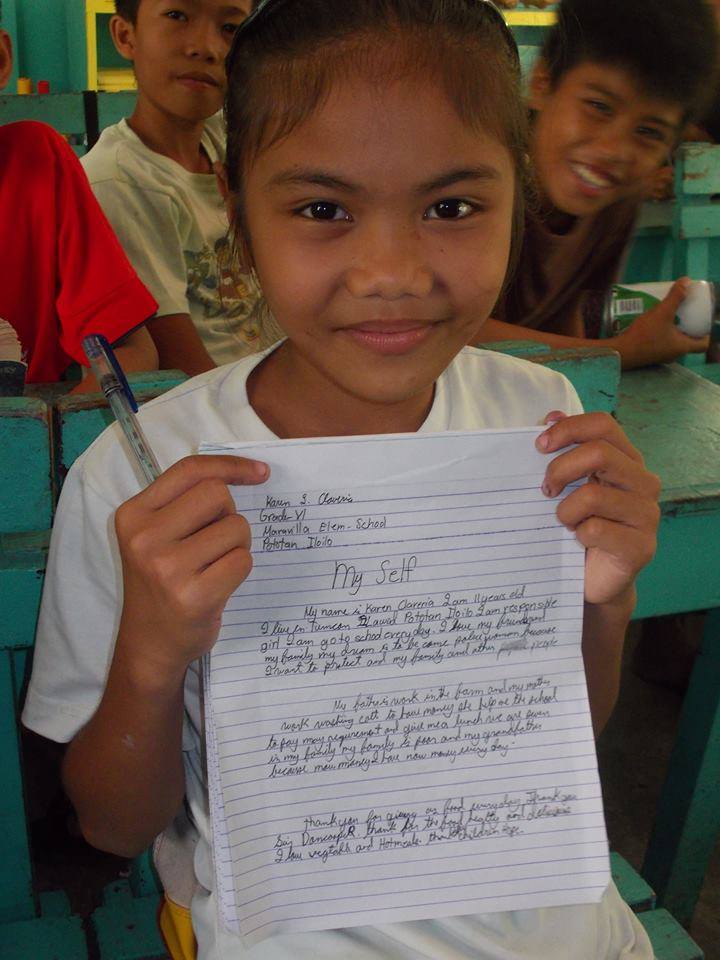 Karen S. Claveria
Grade-VI
Maravilla Elem- School
Pototan Iloilo
My Self
My name is Karen Claveria I am 11 years old
I live in Tumcon Ilawid Pototan Iloilo I am responsible
girl I am go to school everyday. I love my friends and
my family my dream is to be come police woman because
I want to protect and my family and other people
My father is work in the farm and my mother
work washing to have money help me the school
to pay may requirement and give me a lunch we are seven
in my family my family is poor and my grandfather
because mow money I have now money every day.
thank you for giving us food everyday Thank you
Sir thank for the food healty and
I love vegtable and Hotmeals. thank children